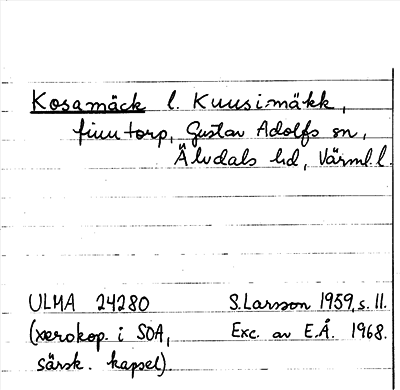 Kosamäck l. Kuusimäkk,
finntorp, Gustav Adolfs sn,
Älvdals hd, Värml. l.
ULMA 24280 S. Larsson 1959, s. 11.
(xerokop. i SOA, Exc. av E.Å. 1968.
särsk. kapsel).